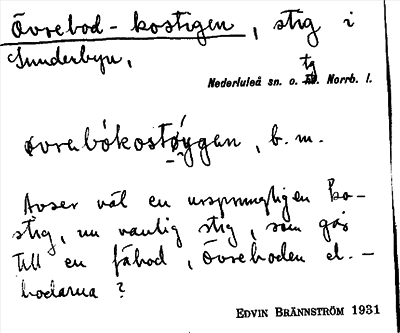 Övrebod-kostigen, stig i
Sunderbyn,
tg
Nederluleå sn. o. hd. Norrb. l.
øvrabókostøýgen, b. m.
Avser väl en ursprungligen ko-
stig, nu vanlig stig, som går
till en fäbod, Övreboden el. -
bodarna?
EDVIN BRÄNNSTRÖM 1931